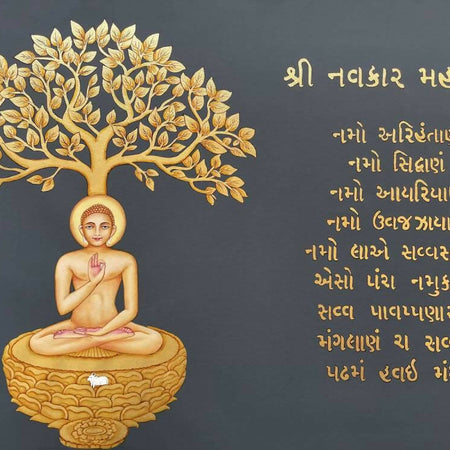 શ્રી નવકાર મહ
નમો અરિહંતાણ
નમો સિદ્ધાણં
નમો આયરિયા
નમો ઉવજઝાયા
નમો લાએ સવ્વસ
એસો પંચ નમુક
સવ્વ પાવપ્પણા
મંગલાણં ચ સવ્
પઢમં હવઇ મં